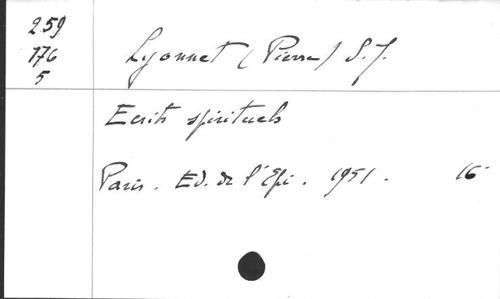 259
176
5
Lyonnet (Pierre) S.J.
Ecrits spirituels
Paris. Ed. de l'Epi. 1951. 16°